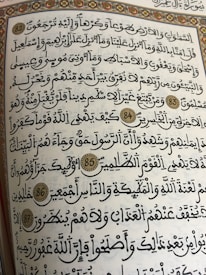 السماوات والارض طوعا وكرها وإليه ترجعون 82
قل ءامنا بالله وما أنزل علينا وما أنزل على إبراهيم وإسماعيل
وإسحاق ويعقوب والاسباط وما أوتي موسى وعيسى
والنبيئون من ربهم لا نفرق بين أحد منهم ونحن له
مسلمون 83 ومن يبتغ غير الاسلام دينا فلن يقبل منه وهو
في الاخرة من الخاسرين 84 كيف يهدي الله قوما كفروا
بعد إيمانهم وشهدوا أن الرسول حق وجاءهم البينات
والله لا يهدي القوم الظالمين 85 أولئك جزاؤهم أن
عليهم لعنة الله والملائكة والناس أجمعين 86
لا يخفف عنهم العذاب ولا هم ينظرون 87
من بعد ذلك وأصلحوا فإن الله غفور